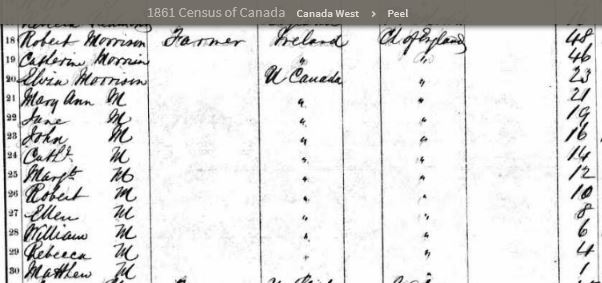 1861 Census of Canada Canada West > Peel
18 Robert Morrison Farmer Ireland Ch of England 48
19 Catherine Morrison " " 46
20 Morrison U Canada " 23
21 Mary Ann M " " 21
22 Jane M " " 19
23 John M " " 16
24 Cathe M " " 14
25 Margt M " " 12
26 Robert M " " 10
27 Ellen M " " 8
28 William M " " 6
29 Rebecca M " " 4
30 Matthew M " " 1